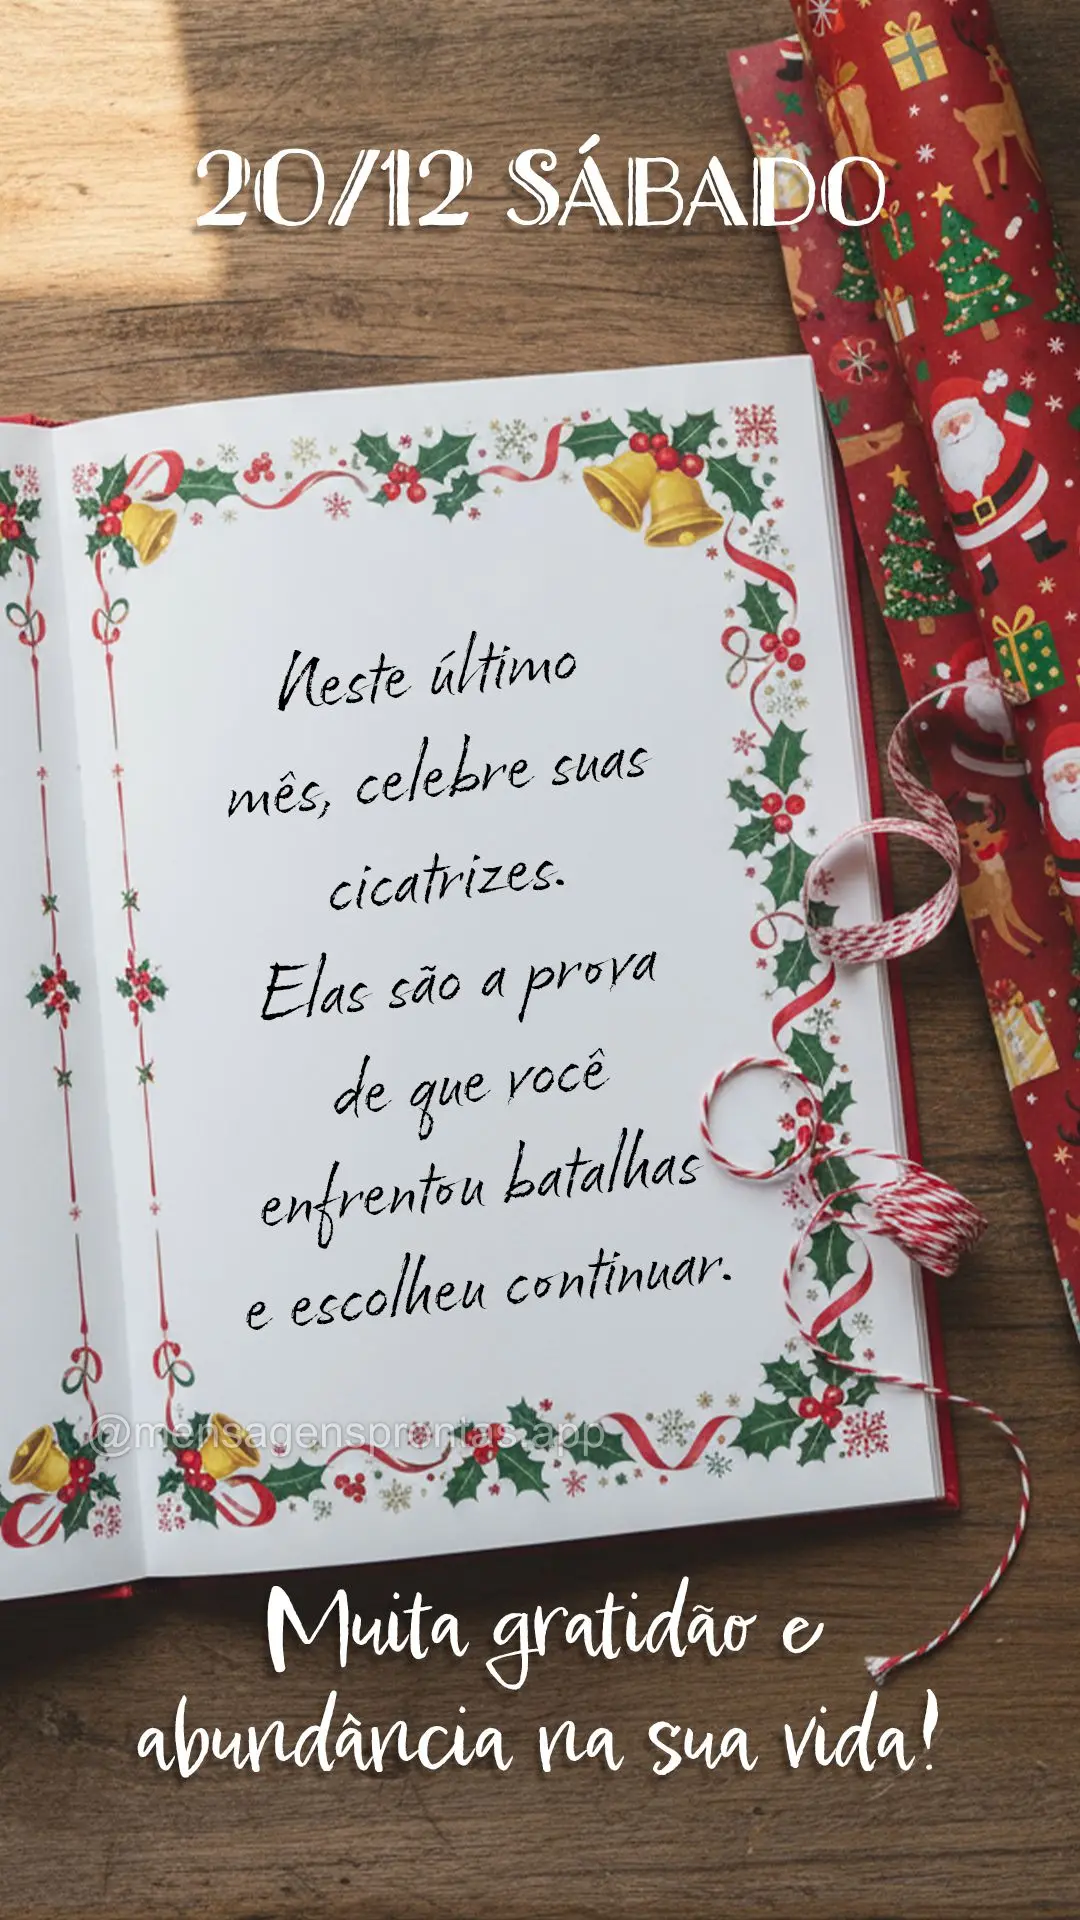 20/12 SÁBADO
Neste último
mês, celebre suas
cicatrizes.
Elas são a prova
de que você
enfrentou batalhas
e escolheu continuar.
@mensagensprontas.app
Muita gratidão e
abundância na sua vida!